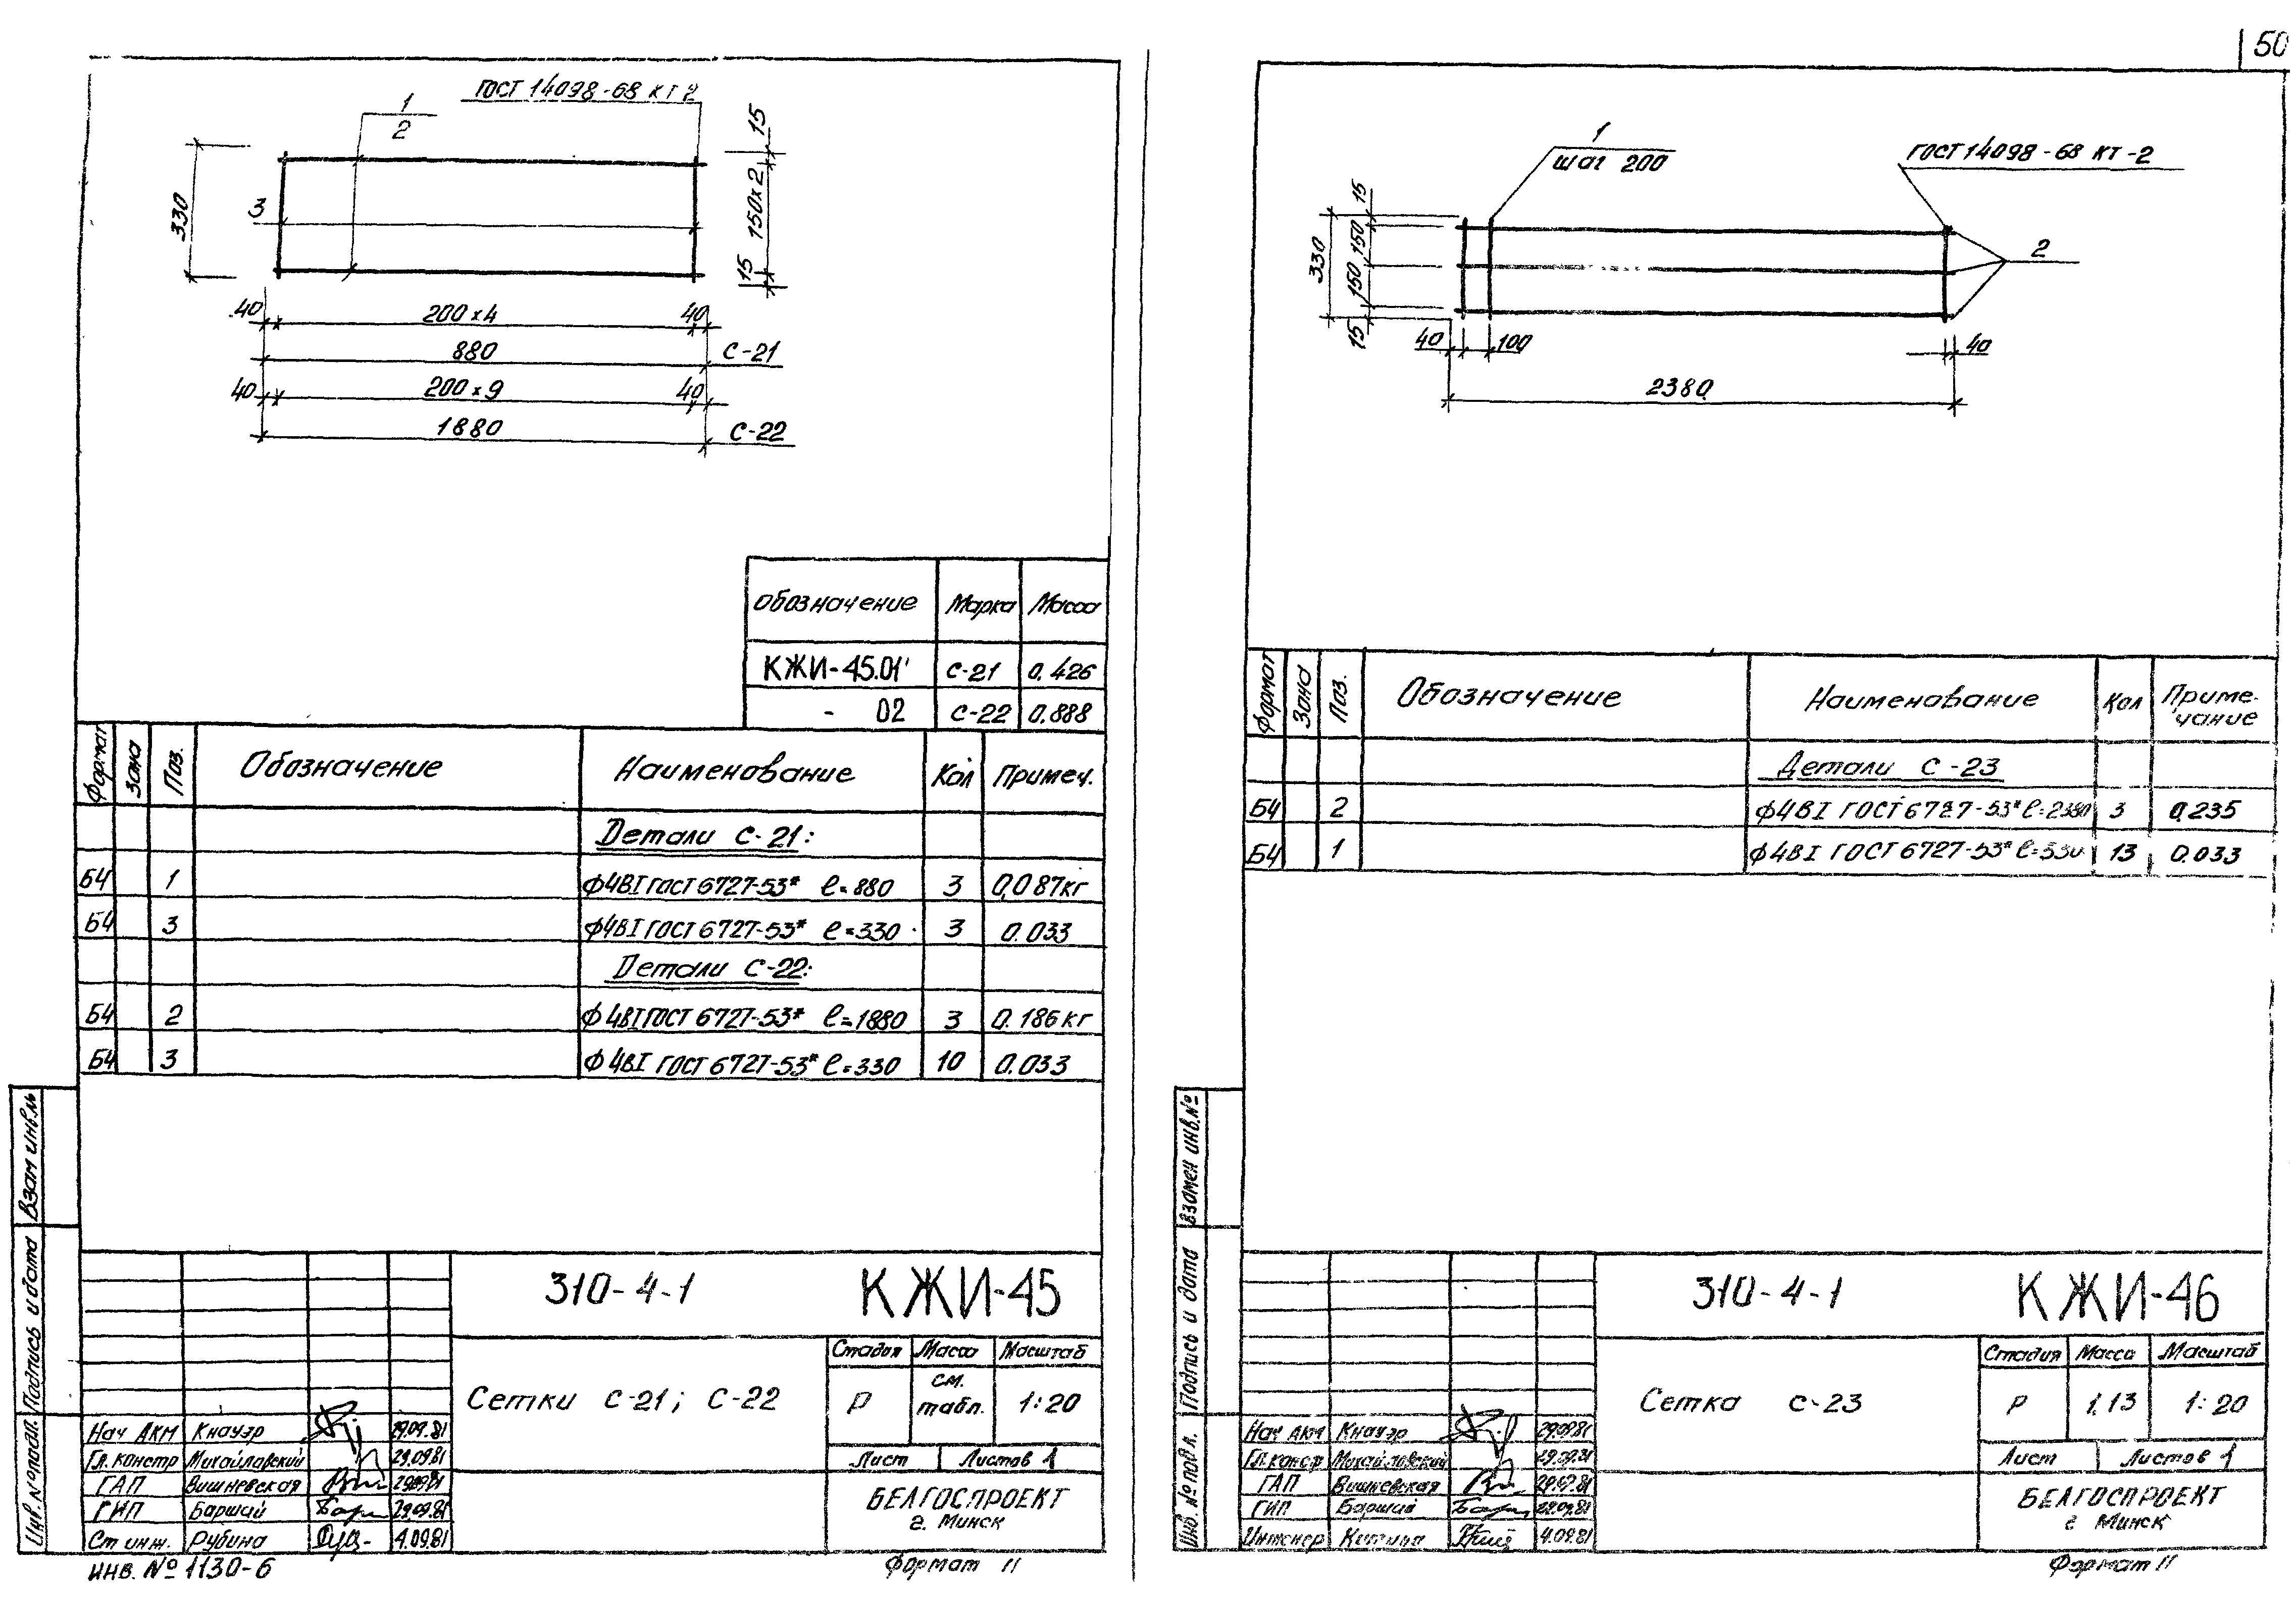 50
ГОСТ 14098-68 КТ 2
1
2
3
330
15
150х2
15
40 200х4 40
880 С-21
40 200х9 40
1880 С-22
Обозначение Марка Масса
КЖИ-45.01 С-21 0.426
- 02 С-22 0.888
Формат Зона Поз. Обозначение Наименование Кол Примеч.
Детали С-21:
Б4 1 ф4ВI ГОСТ 6727-53* ℓ=880 3 0,087кг
Б4 3 ф4ВI ГОСТ 6727-53* ℓ=330 3 0.033
Детали С-22:
Б4 2 ф4ВI ГОСТ 6727-53* ℓ=1880 3 0.186кг
Б4 3 ф4ВI ГОСТ 6727-53* ℓ=330 10 0.033
Взам инв.№
Подпись и дата
Инв. № подл.
310-4-1 КЖИ-45
Сетки С-21; С-22
Стадия Масса Масштаб
Р см. табл. 1:20
Лист Листов 1
Нач АКМ Кнауэр 29.09.81
Гл. констр Михайловский 29.09.81
ГАП Вишневская 29.09.81
ГИП Барший 29.09.81
Ст инж. Рубина 4.09.81
БЕЛГОСПРОЕКТ
г. Минск
инв. № 1130-6
Формат 11
1
шаг 200
ГОСТ 14098-68 КТ-2
2
330
15
150
150
15
40 100 40
2380
Формат Зона Поз. Обозначение Наименование Кол Примечание
Детали С-23
Б4 2 ф4ВI ГОСТ 6727-53* ℓ=2380 3 0,235
Б4 1 ф4ВI ГОСТ 6727-53* ℓ=330 13 0.033
Взамен инв.№
Подпись и дата
Инв. № подл.
310-4-1 КЖИ-46
Сетка С-23
Стадия Масса Масштаб
Р 1.13 1:20
Лист Листов 1
Нач АКМ Кнауэр 29.09.81
Гл. констр Михайловский 29.09.81
ГАП Вишневская 29.09.81
ГИП Барший 29.09.81
Инженер 4.09.81
БЕЛГОСПРОЕКТ
г Минск
Формат 11